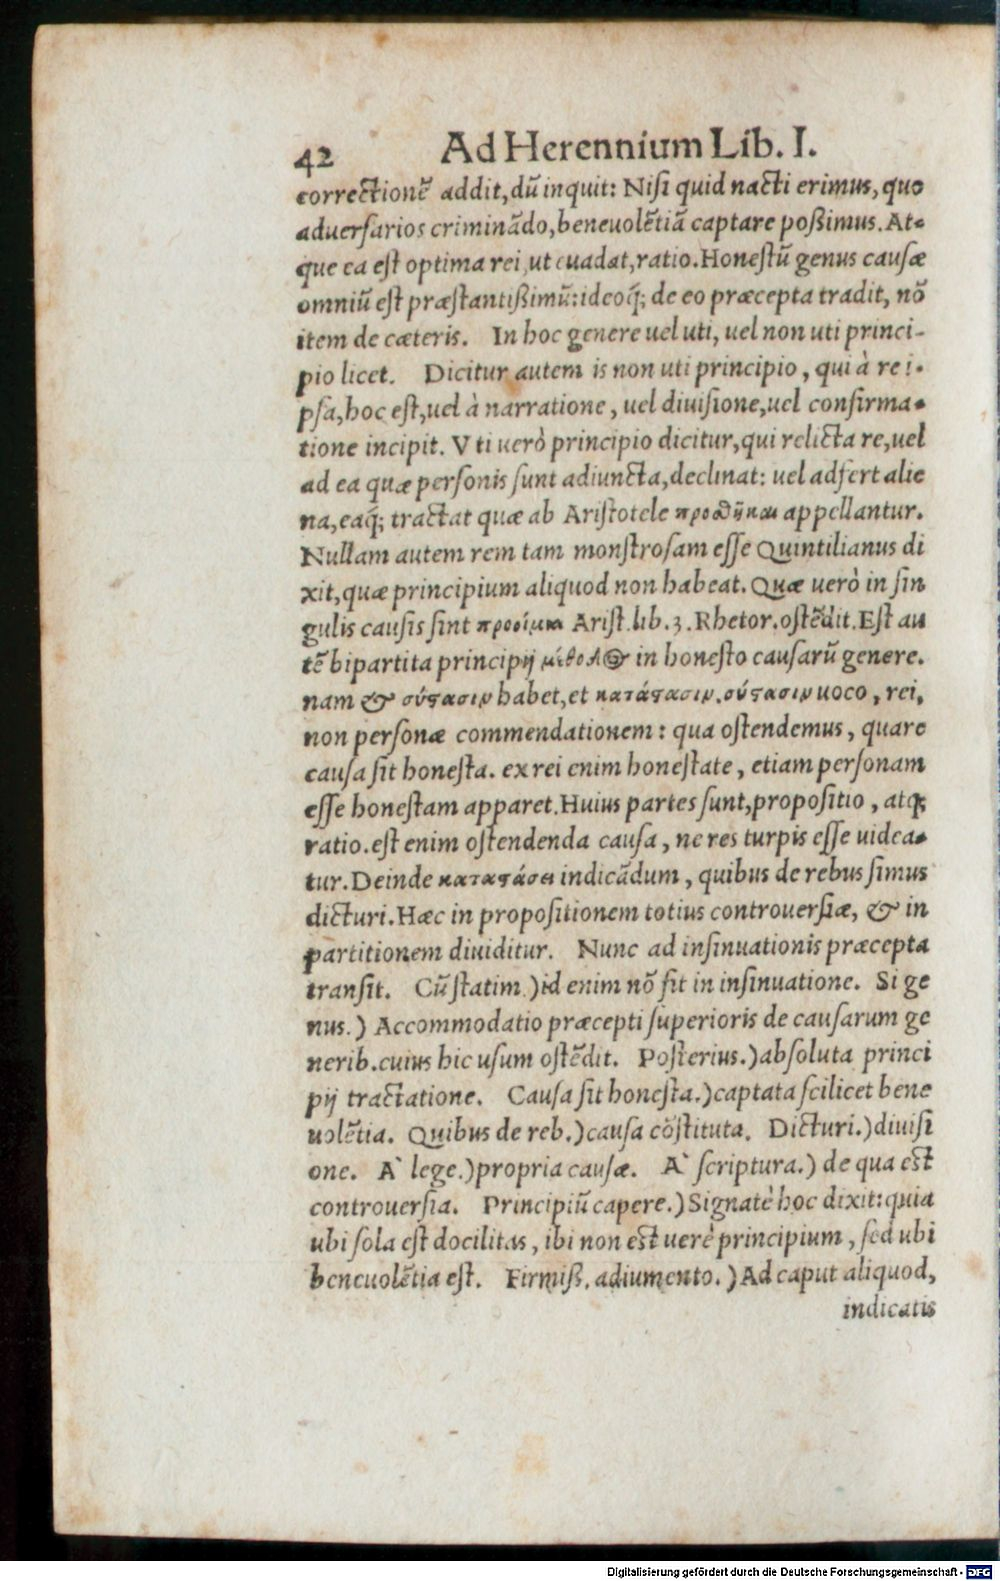 42 Ad Herennium Lib. I.
correctionẽ addit, dũ inquit: Nisi quid nacti erimus, quo
aduersarios criminãdo, beneuolẽtiã captare poßimus. At-
que ea est optima rei, ut euadat, ratio. Honestũ genus causæ
omniũ est præstantißimũ: ideoq́; de eo præcepta tradit, nõ
item de cæteris. In hoc genere uel uti, uel non uti princi-
pio licet. Dicitur autem is non uti principio, qui à re i-
psa, hoc est, uel à narratione, uel diuisione, uel confirma-
tione incipit. Vti uerò principio dicitur, qui relicta re, uel
ad ea quæ personis sunt adiuncta, declinat: uel adfert alie
na, eaq́; tractat quæ ab Aristotele προσθῆκαι appellantur.
Nullam autem rem tam monstrosam esse Quintilianus di
xit, quæ principium aliquod non habeat. Quæ uerò in sin
gulis causis sint προοίμια Arist. lib. 3. Rhetor. ostẽdit. Est au
tẽ bipartita principij μέθοδος in honesto causarũ genere.
nam & σύστασιν habet, et κατάστασιν. σύστασιν uoco, rei,
non personæ commendationem: qua ostendemus, quare
causa sit honesta. ex rei enim honestate, etiam personam
esse honestam apparet. Huius partes sunt, propositio, atq;
ratio. est enim ostendenda causa, ne res turpis esse uidea-
tur. Deinde καταστάσει indicãdum, quibus de rebus simus
dicturi. Hæc in propositionem totius controuersiæ, & in
partitionem diuiditur. Nunc ad insinuationis præcepta
transit. Cũ statim.) id enim nõ fit in insinuatione. Si ge
nus.) Accommodatio præcepti superioris de causarum ge
nerib. cuius hic usum ostẽdit. Posterius.) absoluta princi
pij tractatione. Causa sit honesta.) captata scilicet bene
uolẽtia. Quibus de reb.) causa cõstituta. Dicturi.) diuisi
one. A` lege.) propria causæ. A` scriptura.) de qua est
controuersia. Principiũ capere.) Signatè hoc dixit: quia
ubi sola est docilitas, ibi non est uerè principium, sed ubi
beneuolẽtia est. Firmiß. adiumento.) Ad caput aliquod,
indicatis
Digitalisierung gefördert durch die Deutsche Forschungsgemeinschaft - DFG